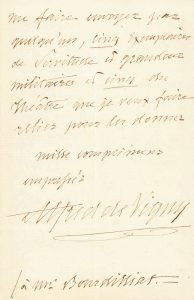 me faire envoyer par
quelqu'un, cinq exemplaires
de Servitude et grandeur
militaires et cinq du
théâtre que je veux faire
relier pour les donner
mille compliments
empressés
Alfred de Vigny
à Mr Bourdilliat.